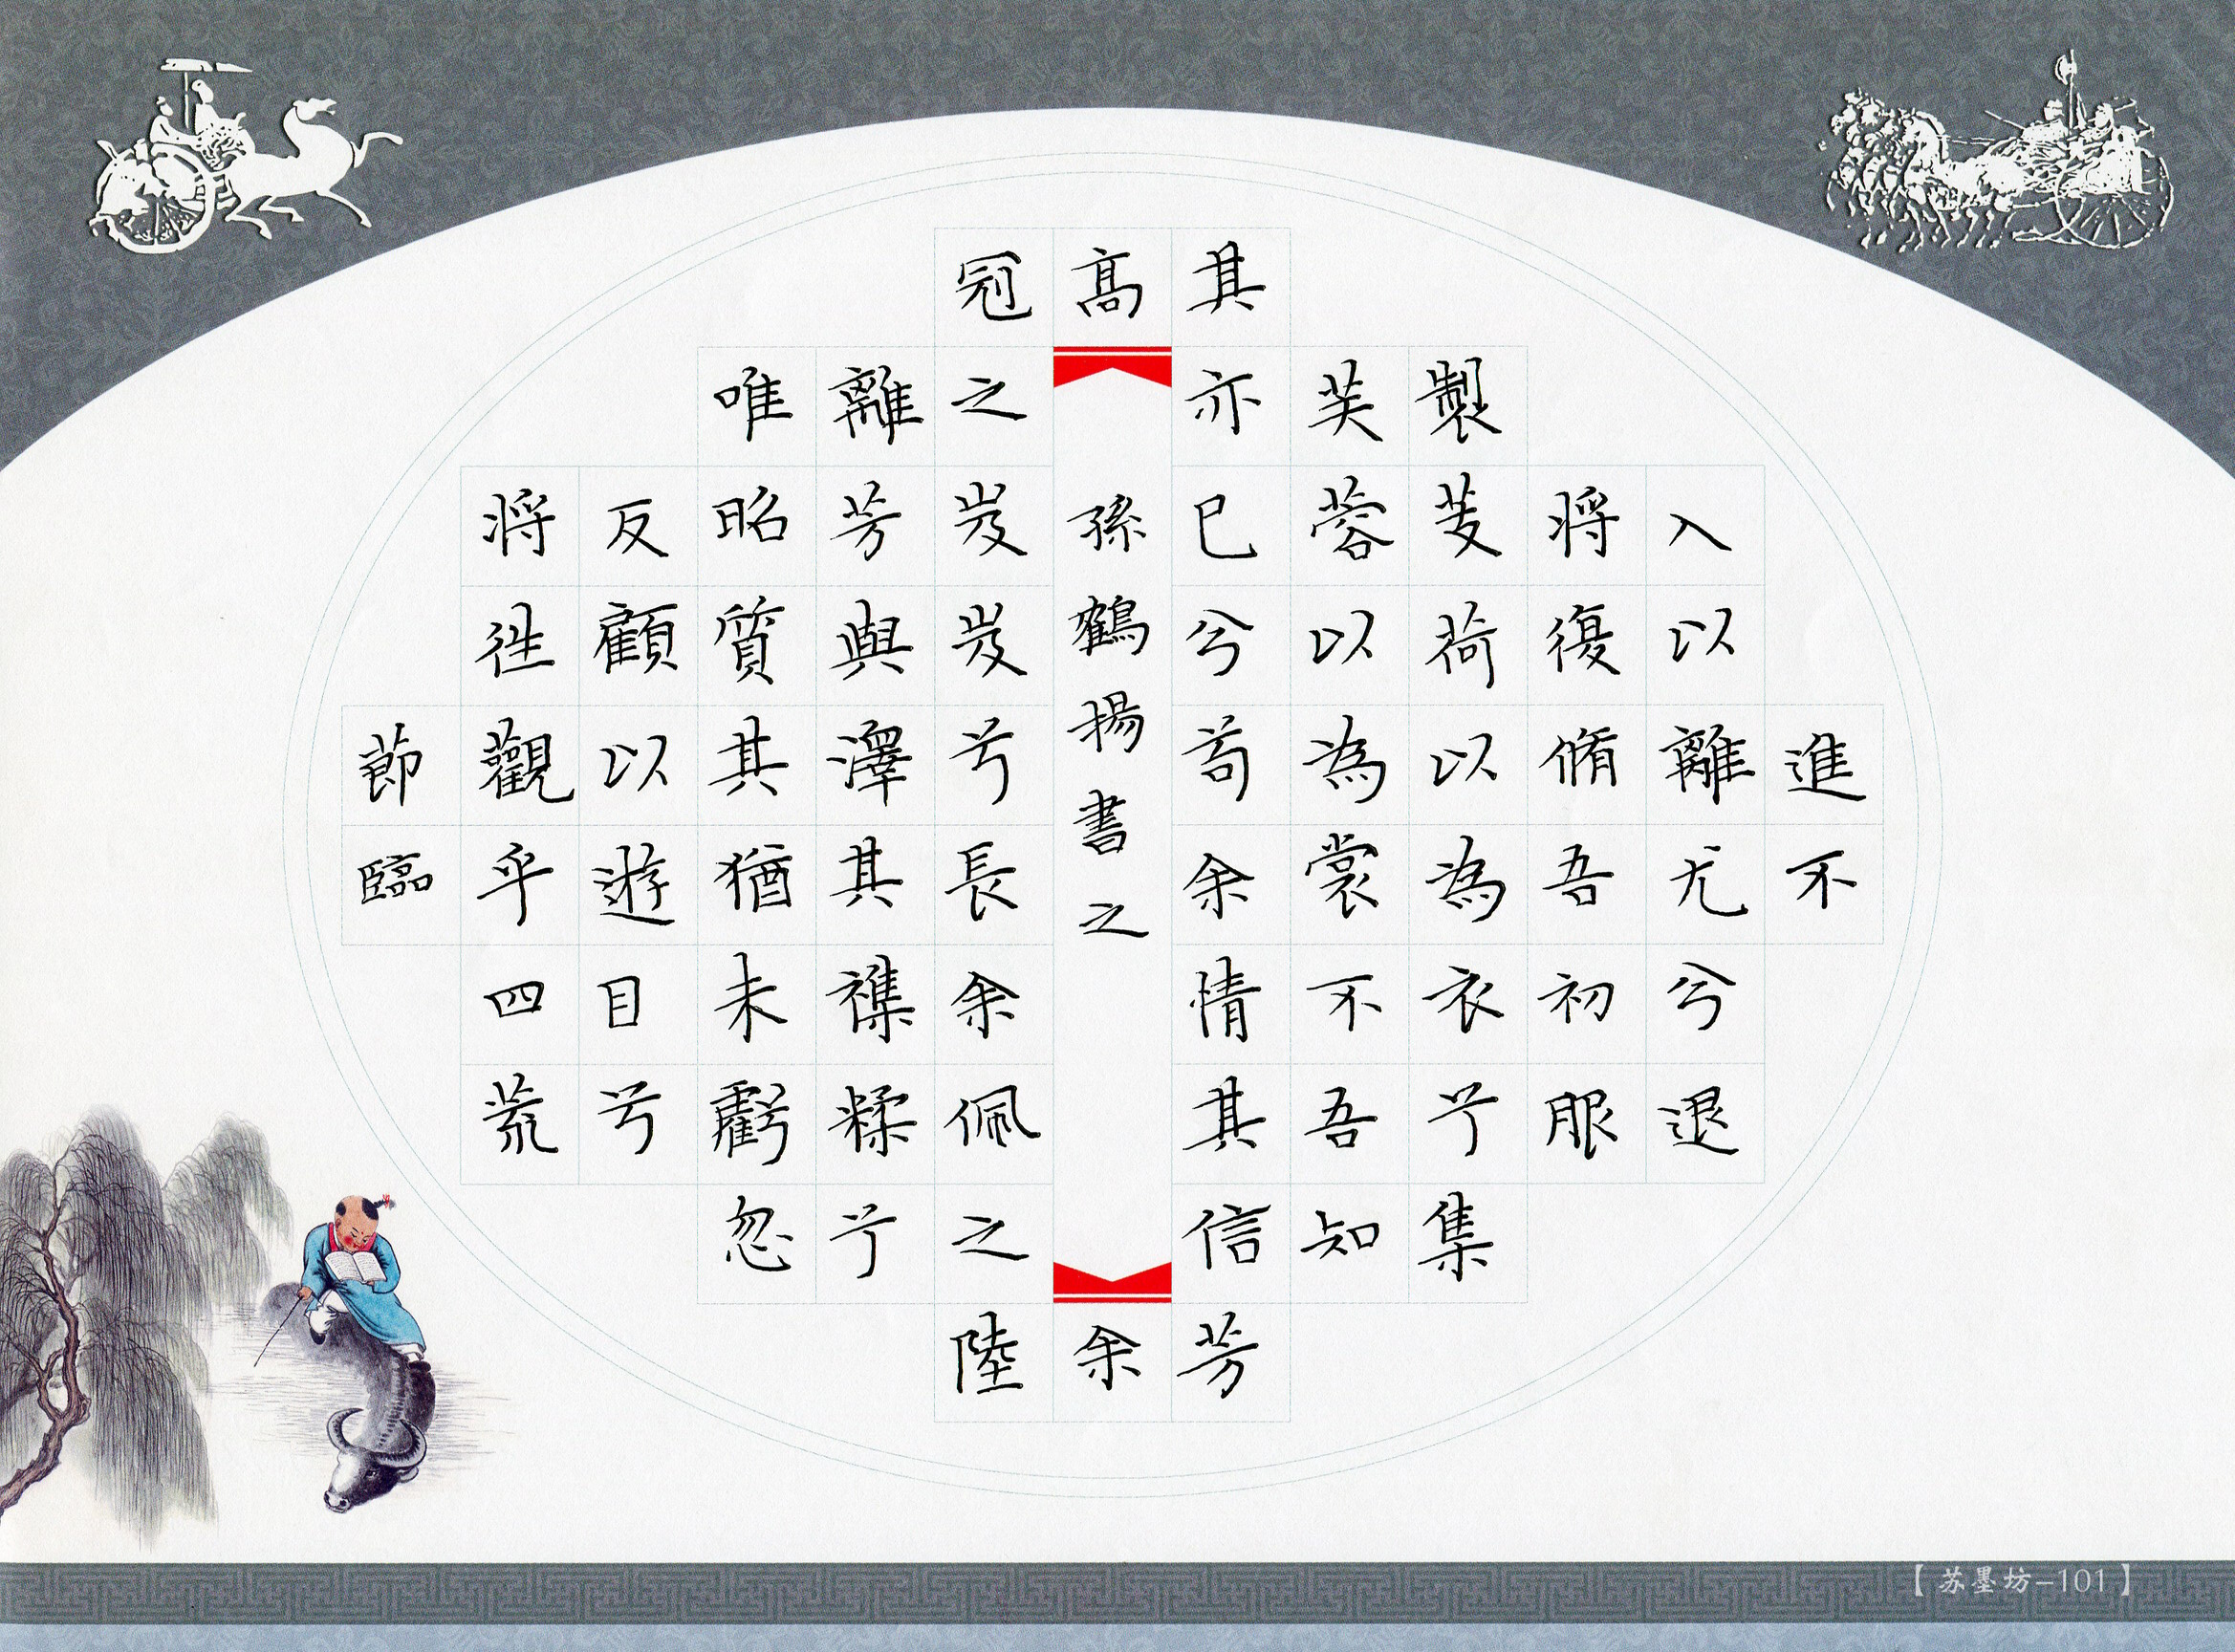 進不
入以離尤兮退
将復脩吾初服
製芰荷以為衣兮集
芙蓉以為裳不吾知
其亦已兮苟余情其信芳
髙余
冠之岌岌兮長余佩之陸
離芳與澤其襍糅兮
唯昭質其猶未虧忽
反顧以遊目兮
将徃觀乎四荒
節臨
孫鶴揚書之
【苏墨坊-101】